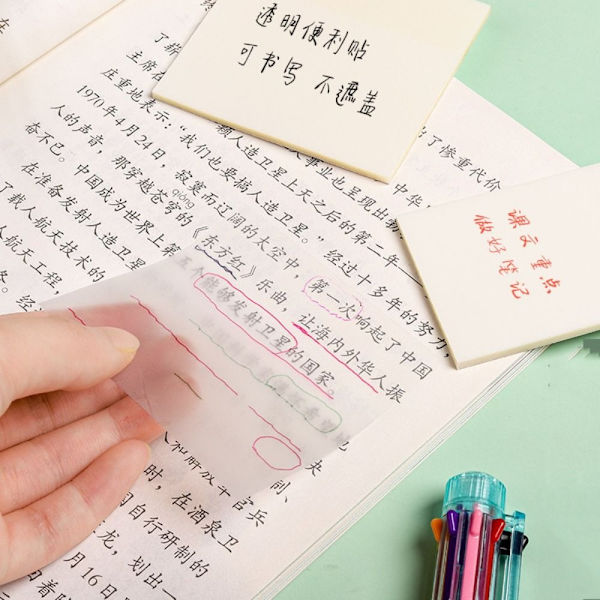 透明便利贴
可书写 不遮盖
课文重点
做好笔记
出了惨重代价
主席在
颗人造卫星上天之后的第二年——
庄重地表示：“我们也要搞人造卫星。”经过十多年的努力，
1970年4月24日，寂寞而辽阔的太空中，第一次响起了中国
qióng
人的声音，那穿越苍穹的《东方红》乐曲，让海内外华人振
奋不已。中国成为世界上第五个能够发射卫星的国家。
在准备发射人造卫星
了载人航天技术的
人航天工程，
冬。
和解放军官兵
时，在酒泉卫
自行研制的
龙，划出一
月16日